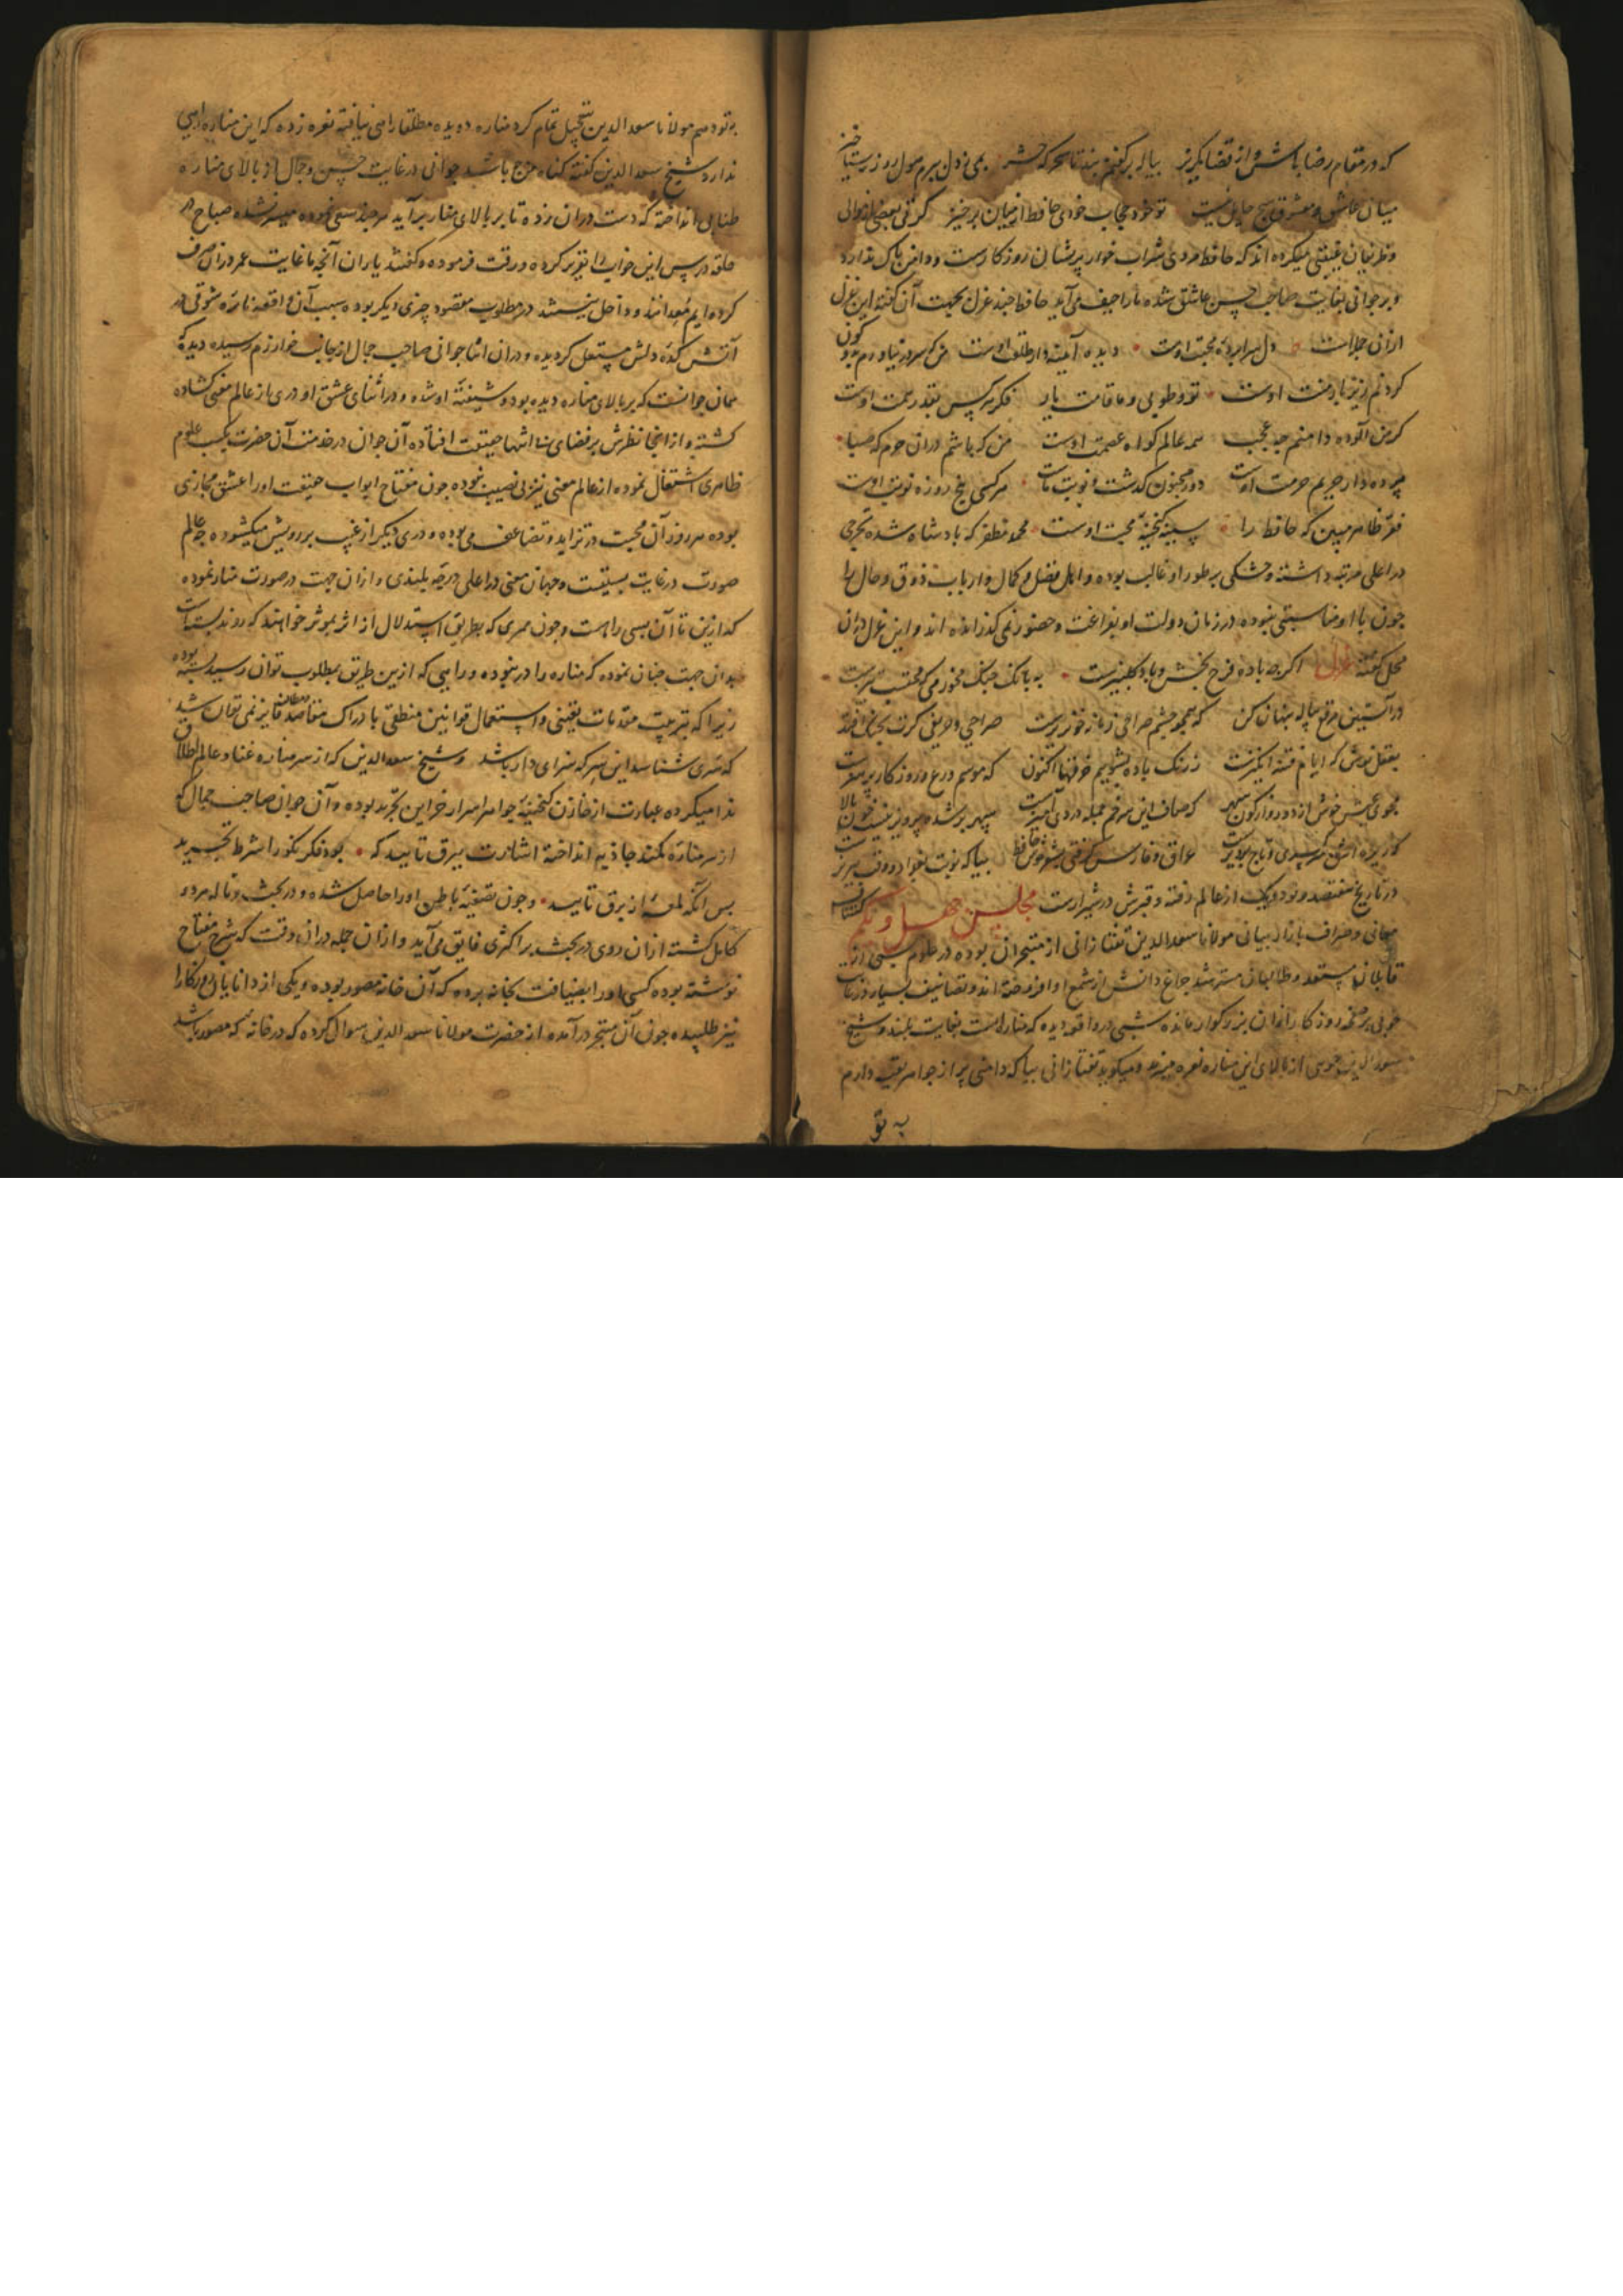 که در مقام رضا باش و از قضا مگریز پیاله بر کفنم بند تا سحرکه حشر بمی ز دل ببرم هول روز رستاخیز
میان عاشق و معشوق هیچ حایل نیست تو خود حجاب خودی حافظ از میان برخیز کرتی بعضی از موالی
و ظریفان غیبتی میکرده اند که حافظ مردی شراب خوار پریشان روزکارست و دامن پاک ندارد
و بر جوانی بغایت صاحب حسن عاشق شده ما را حیف می آید حافظ چند غزل بجهت آن کفته این غزل
از آن جمله است دل سراپرده محبت اوست دیده آیینه دار طلعت اوست من که سر در نیاورم بدو کون
کردنم زیر بار منت اوست تو و طوبی و ما و قامت یار فکر هر کس بقدر همت اوست
کر من آلوده دامنم چه عجب همه عالم کواه عصمت اوست من که باشم در ان حرم که صبا
پرده دار حریم حرمت اوست دور مجنون کذشت و نوبت ماست هر کسی پنج روزه نوبت اوست
فقر ظاهر مبین که حافظ را سینه کنجینه محبت اوست محمد مظفر که پادشاه شده تحرجی
در اعلی مرتبه داشته و خشکی بر طور او غالب بوده و اهل فضل و کمال و ارباب ذوق و حال را
چون با او مناسبتی نبوده در زمان دولت او بفراغت و حضور نمی کذرانده اند و این غزل در ان
محل کفته غزل اکرچه باده فرح بخش و باد کلبیزست به بانک چنک مخور می که محتسب تیزست
در آستین مرقع پیاله پنهان کن که همچو چشم صراحی زمانه خون ریزست صراحی و حریفی کرت بچنک افتد
بعقل نوش که ایام فتنه انکیزست ز رنک باده بشوییم خرقها اکنون که موسم ورع و روزکار پرهیزست
مجوی عیش خوش از دور واژکون سپهر که صاف این سر خم جمله دردی آمیزست سپهر بر شده پرویزنیست خون پالا
که ریزه اش سر کسری و تاج پرویزست عراق و فارس کرفتی بشعر خوش حافظ بیا که نوبت بغداد و وقت تبریزست
در تاریخ هفتصد و نود و یک از عالم رفته و قبرش در شیرازست مجلس چهل و یکم کشاف
معانی و صراف بازار بیانی مولانا سعد الدین تفتازانی از متبحران بوده در علوم بسی از
قابلان مستعد و طالبان مسترشد چراغ دانش از شمع او افروخته اند و تصانیف بسیار در زبان
عربی بر صفحه روزکار از ان بزرکوار مانده شبی در واقعه دیده که مناره است بغایت بلند و شیخ
سعد الدین حموی از بالای این مناره نعره میزند و میکوید تفتازانی بیا که دامنی پر از جواهر بقیت دارم
به تو
به تو دهم مولانا سعد الدین بتعجیل تمام کرد مناره دویده مطلقا راهی نیافته نعره زده که این مناره راهی
ندارد شیخ سعد الدین کفته کناه من چه باشد جوانی در غایت حسن و جمال از بالای مناره
طنابی انداخته که دست در ان زده تا بر بالای منار برآید هر چند سعی نموده میسر نشده صباح در
حلقه درس این خواب را تقریر کرده و رقت فرموده و کفتند یاران آنچه ما غایت عمر در ان صرف
کرده ایم معدانند و داخل نیستند در مطلوب مقصود چیزی دیکر بوده سبب آن واقعه نائره شوقی در
آتش کده دلش مشتعل کردیده و در ان اثنا جوانی صاحب جمال از جانب خوارزم رسیده دیده که
همان جوانست که بر بالای مناره دیده بود و شیفته او شده و در اثنای عشق او دری از عالم معنی کشاده
کشته و از انجا نظرش بر فضای بی انتها حقیقت افتاده آن جوان در خدمت آن حضرت بکسب علوم
ظاهری اشتغال نموده از عالم معنی نیز بی نصیب نبوده چون مفتاح ابواب حقیقت او را عشق مجازی
بوده هر روز آن محبت در تزاید و تضاعف می بوده و دری دیکر از غیب بر رویش میکشوده چه عالم
صورت در غایت پستیست و جهان معنی در اعلی درجه بلندی و از ان جهت در صورت منار نموده
که ازین تا آن بسی راهست و چون ممری که بطریق استدلال از اثر بموثر خواهند که روند بسته است
بدان جهت چنان نموده که مناره را در نبوده و راهی که ازین طریق بمطلوب توان رسید بسته بوده
زیرا که بترتیب مقدمات یقینی و استعمال قوانین منطقی با دراک مقاصد مطالب فایز نمی توان شد
که سری شناسد این سر که سزای دار باشد و شیخ سعد الدین که از سر مناره غنا و عالم اطلاق
ندا میکرده عبارت از خازن کنجینه جواهر اسرار خزاین تجرید بوده و آن جوان صاحب جمال که
از سر مناره کمند جاذبه انداخته اشارت ببرق تابید که بود فکر نکو را شرط تجرید
پس آنکه لمعه از برق تایید و چون تصفیه باطن او را حاصل شده و در بحث و قاله مردی
کامل کشته از ان روی در بحث بر اکثری فایق می آید و از ان جمله در ان وقت که شرح مفتاح
نوشته بوده کسی او را بضیافت بخانه برده که آن خانه مصور بوده و یکی از دانایان روزکار را
نیز طلبیده چون آن متبحر در آمده از حضرت مولانا سعد الدین سوال کرده که در خانه که مصور باشد